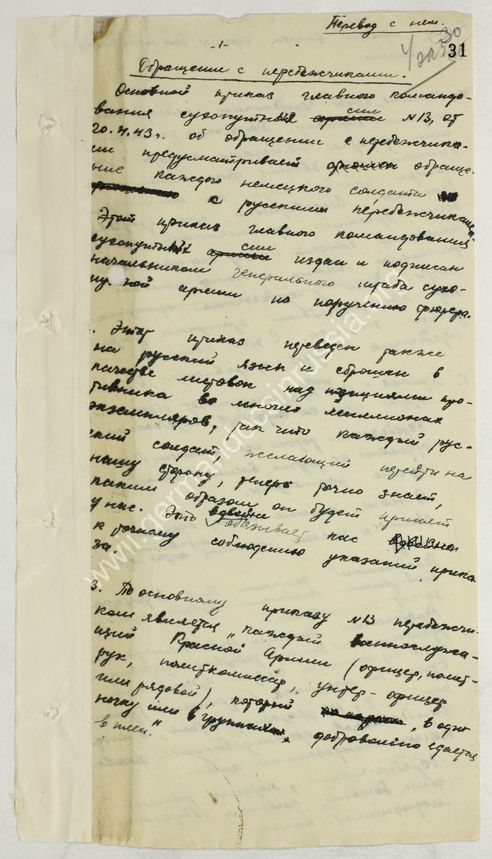 Перевод с нем.
30
31
-1-
Обращение с перебежчиками.
Основной приказ главного командо-
вания сухопутных армии сил №13, от
20.4.43 г. об обращении с перебежчика-
ми предусматривает обраще-
ние каждого немецкого солдата
к русским перебежчикам.
Этот приказ главного командования
сухопутных армии сил издан и подписан
начальником генерального штаба сухо-
путной армии по поручению фюрера.
Этот приказ переведен также
на русский язык и сброшен в
качестве листовок над позициями про-
тивника во многих миллионах
экземпляров, так что каждый рус-
ский солдат, желающий перейти на
нашу сторону, теперь точно знает,
каким образом он будет принят
у нас. Это вдвойне обязывает нас
к точному соблюдению указаний прика-
за.
3. По основному приказу №13 перебежчи-
ком является "каждый военнослужа-
щий Красной Армии (офицер, полит-
рук, политкомиссар, унтер-офицер
или рядовой), который, в оди-
ночку или в группах, добровольно сдается
в плен."
www.germandocsinrussia.org